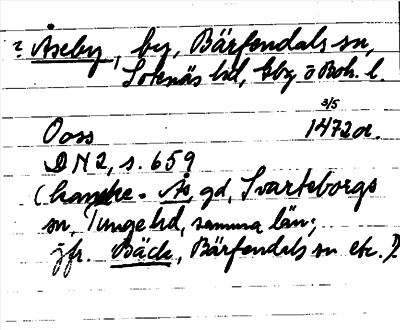 ? Åseby, by, Bärfendals sn,
Sotenäs hd, Gbg o Boh. l.
3/5
Oass 1472 or.
DN 2, s. 659
(kanske = Ås, gd, Svarteborgs
sn, Tunge hd, samma län;
jfr. Bäck, Bärfendals sn etc.).